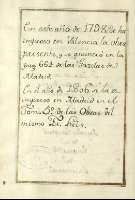 En este año de 1798 se ha
impreso en Valencia la obra
presente, y se anunció en la
pag. 662 de las Gazetas de
Madrid.
En el año de 1806 se ha
impreso en Madrid en el
Tomo 2º de las Obras del
mismo